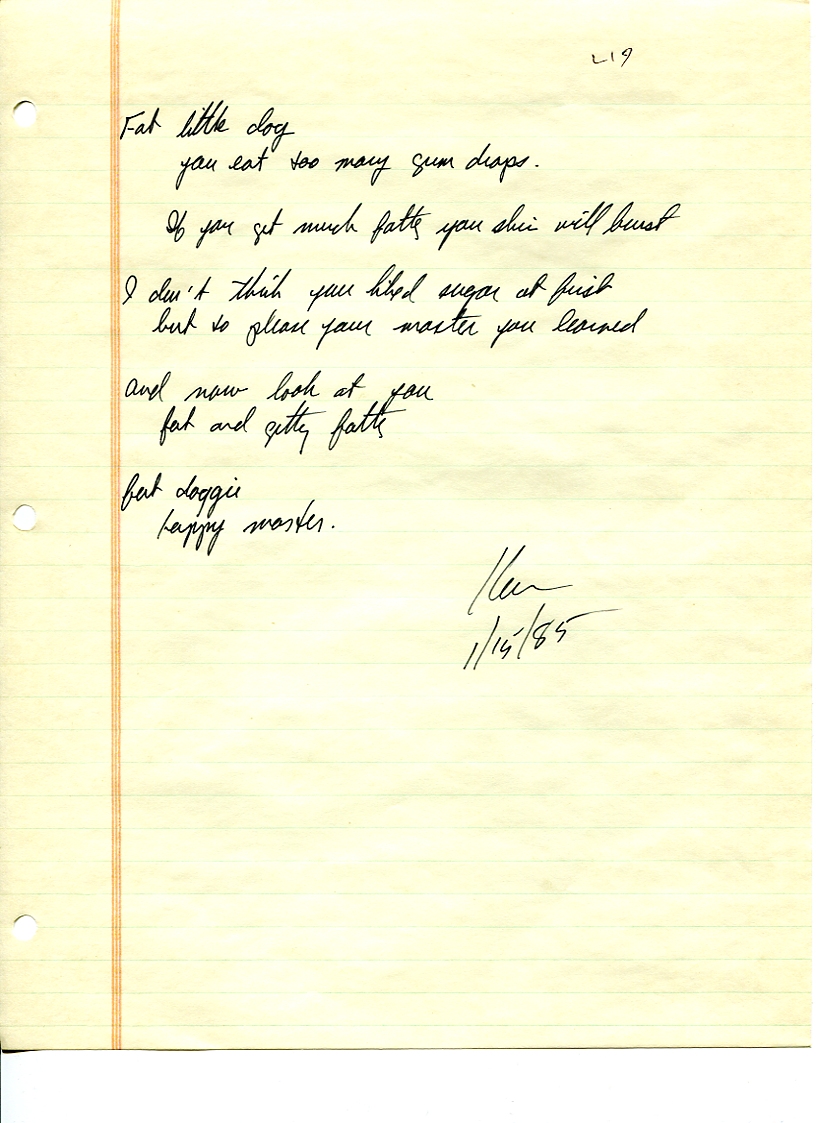 L19
Fat little dog
you eat too many gum drops.
If you get much fatter you skin will burst
I don't think you liked sugar at first
but to please your master you learned
and now look at you
fat and getting fatter
fat doggie
happy master.
Ken
1/15/85